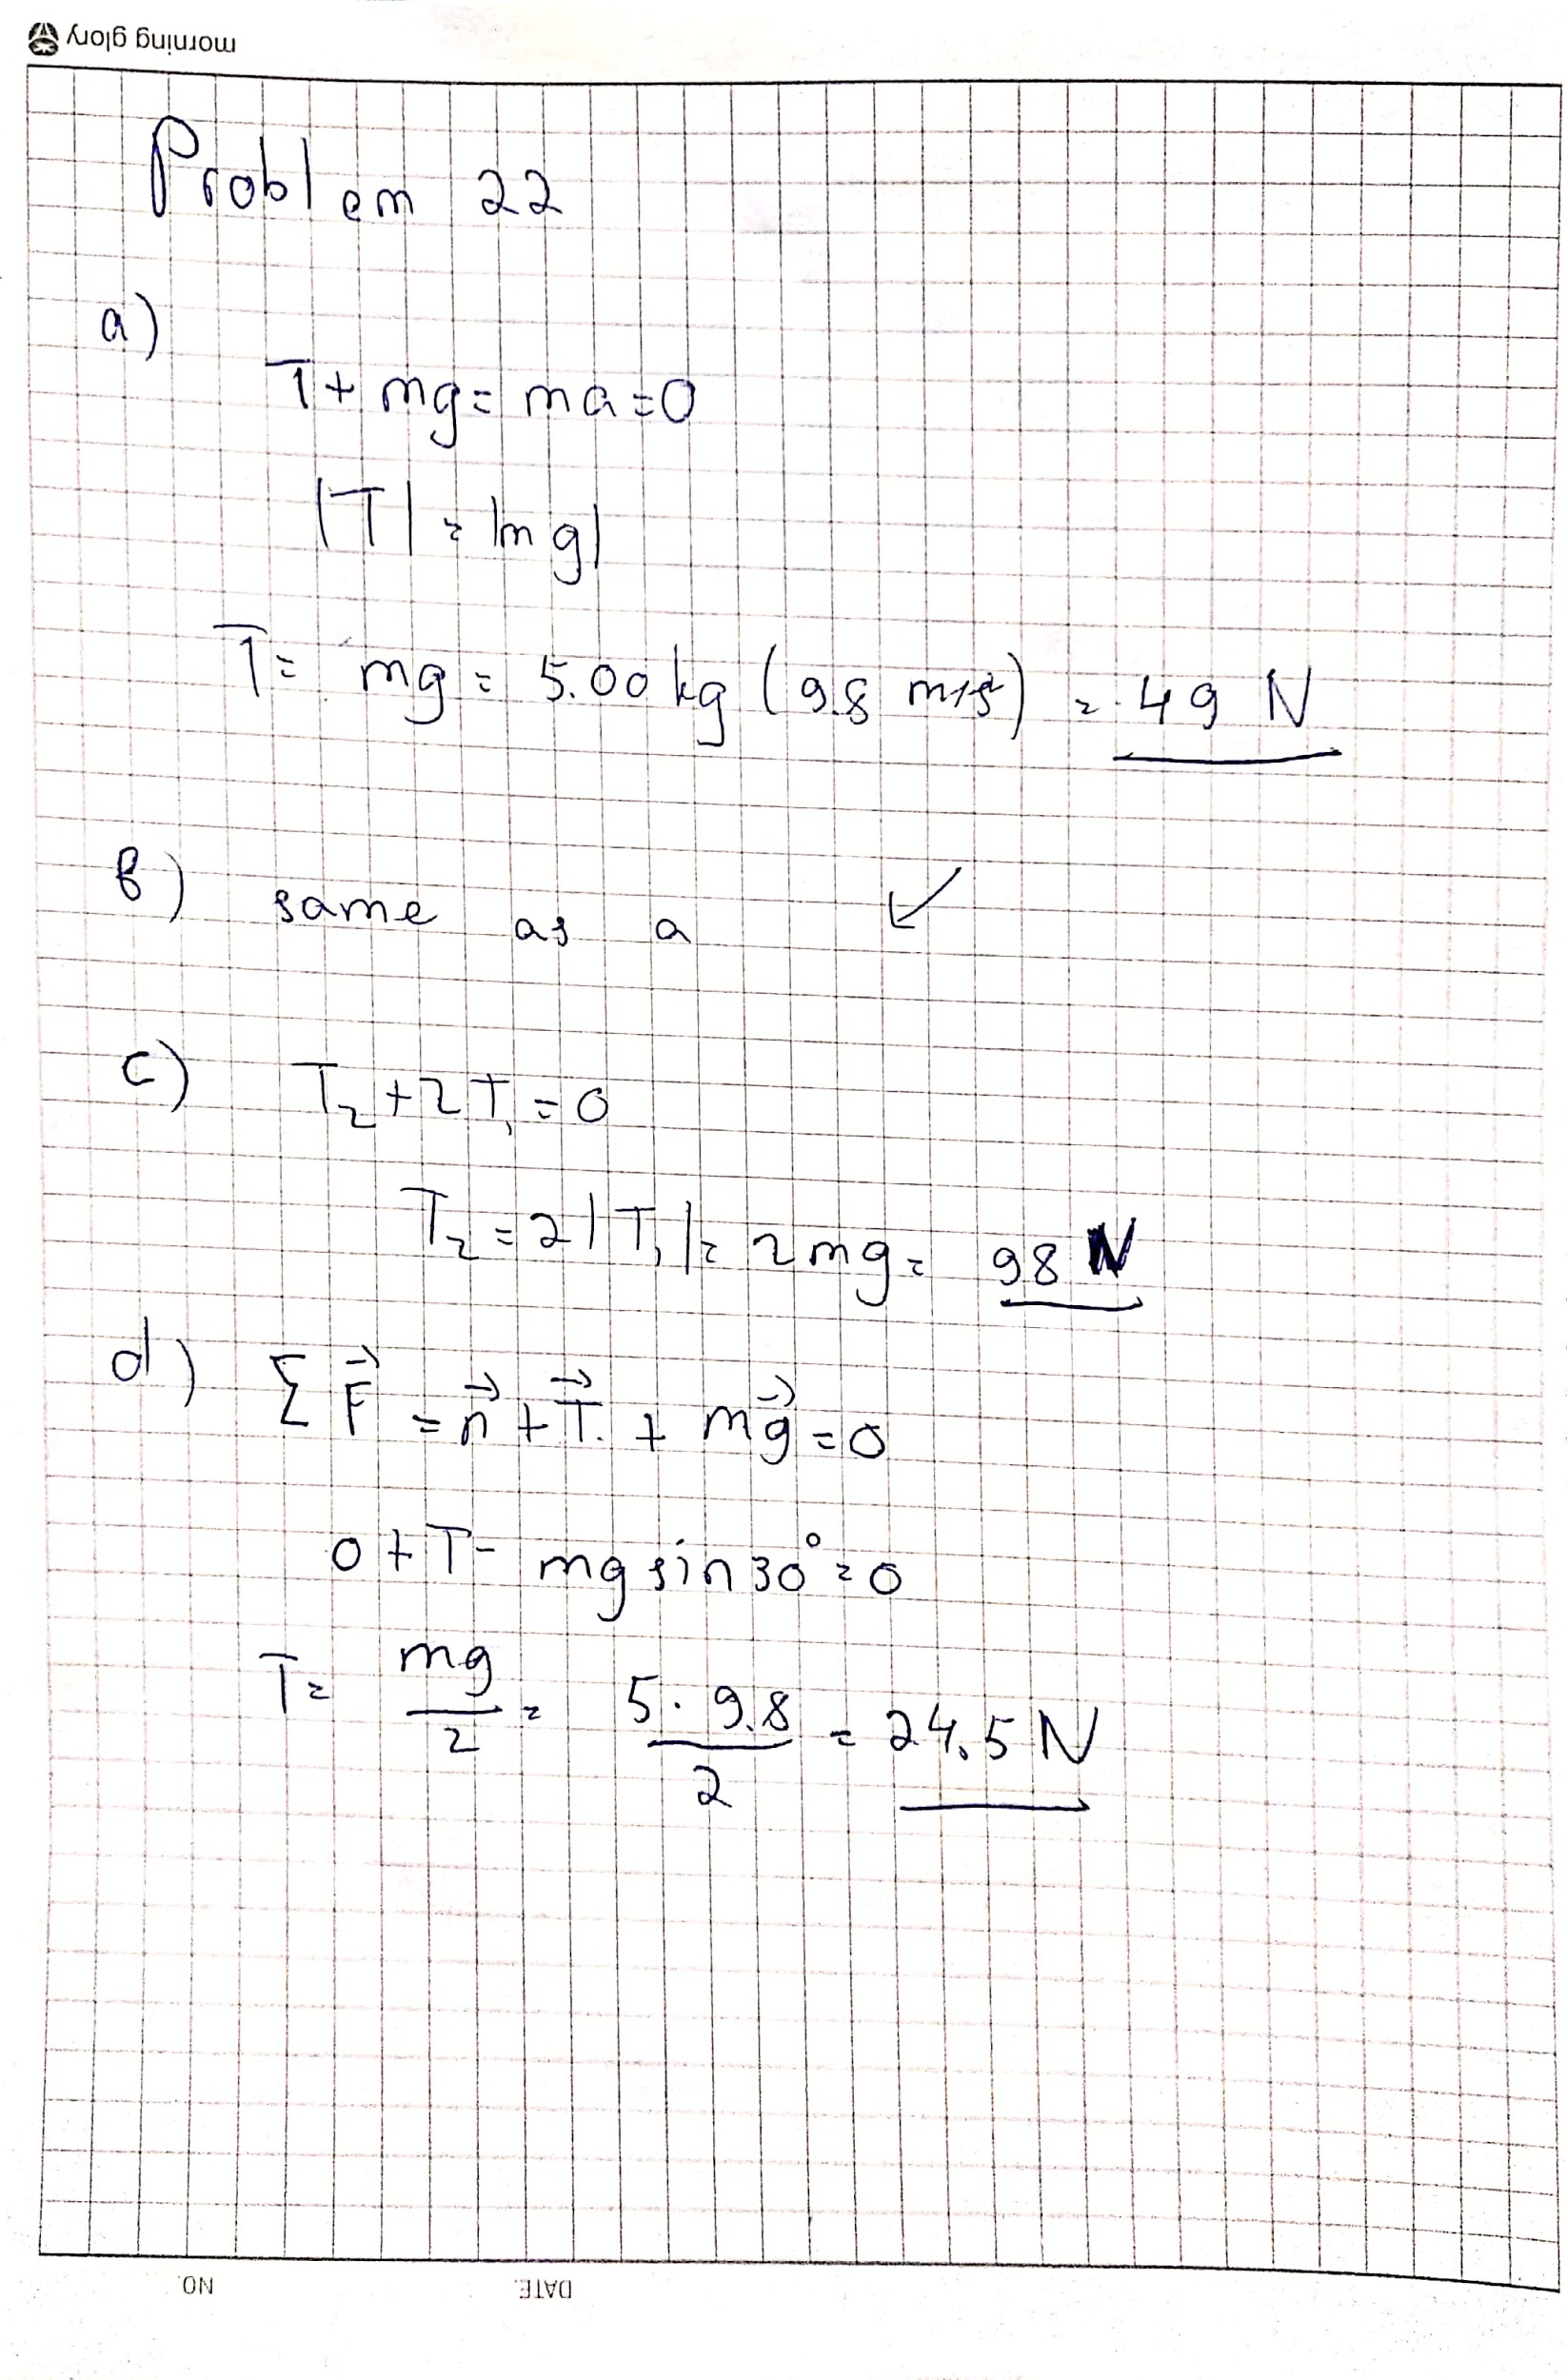 morning glory
Problem 22
a)
T + mg = ma = 0
|T| = |mg|
T = mg = 5.00 kg (9.8 m/s²) = 49 N
b) same as a
c) T₂ + 2T₁ = 0
T₂ = 2|T₁| = 2mg = 98 N
d) Σ F⃗ = n⃗ + T⃗ + mg⃗ = 0
0 + T - mg sin 30° = 0
T = mg/2 = 5 · 9.8/2 = 24.5 N
NO. DATE.